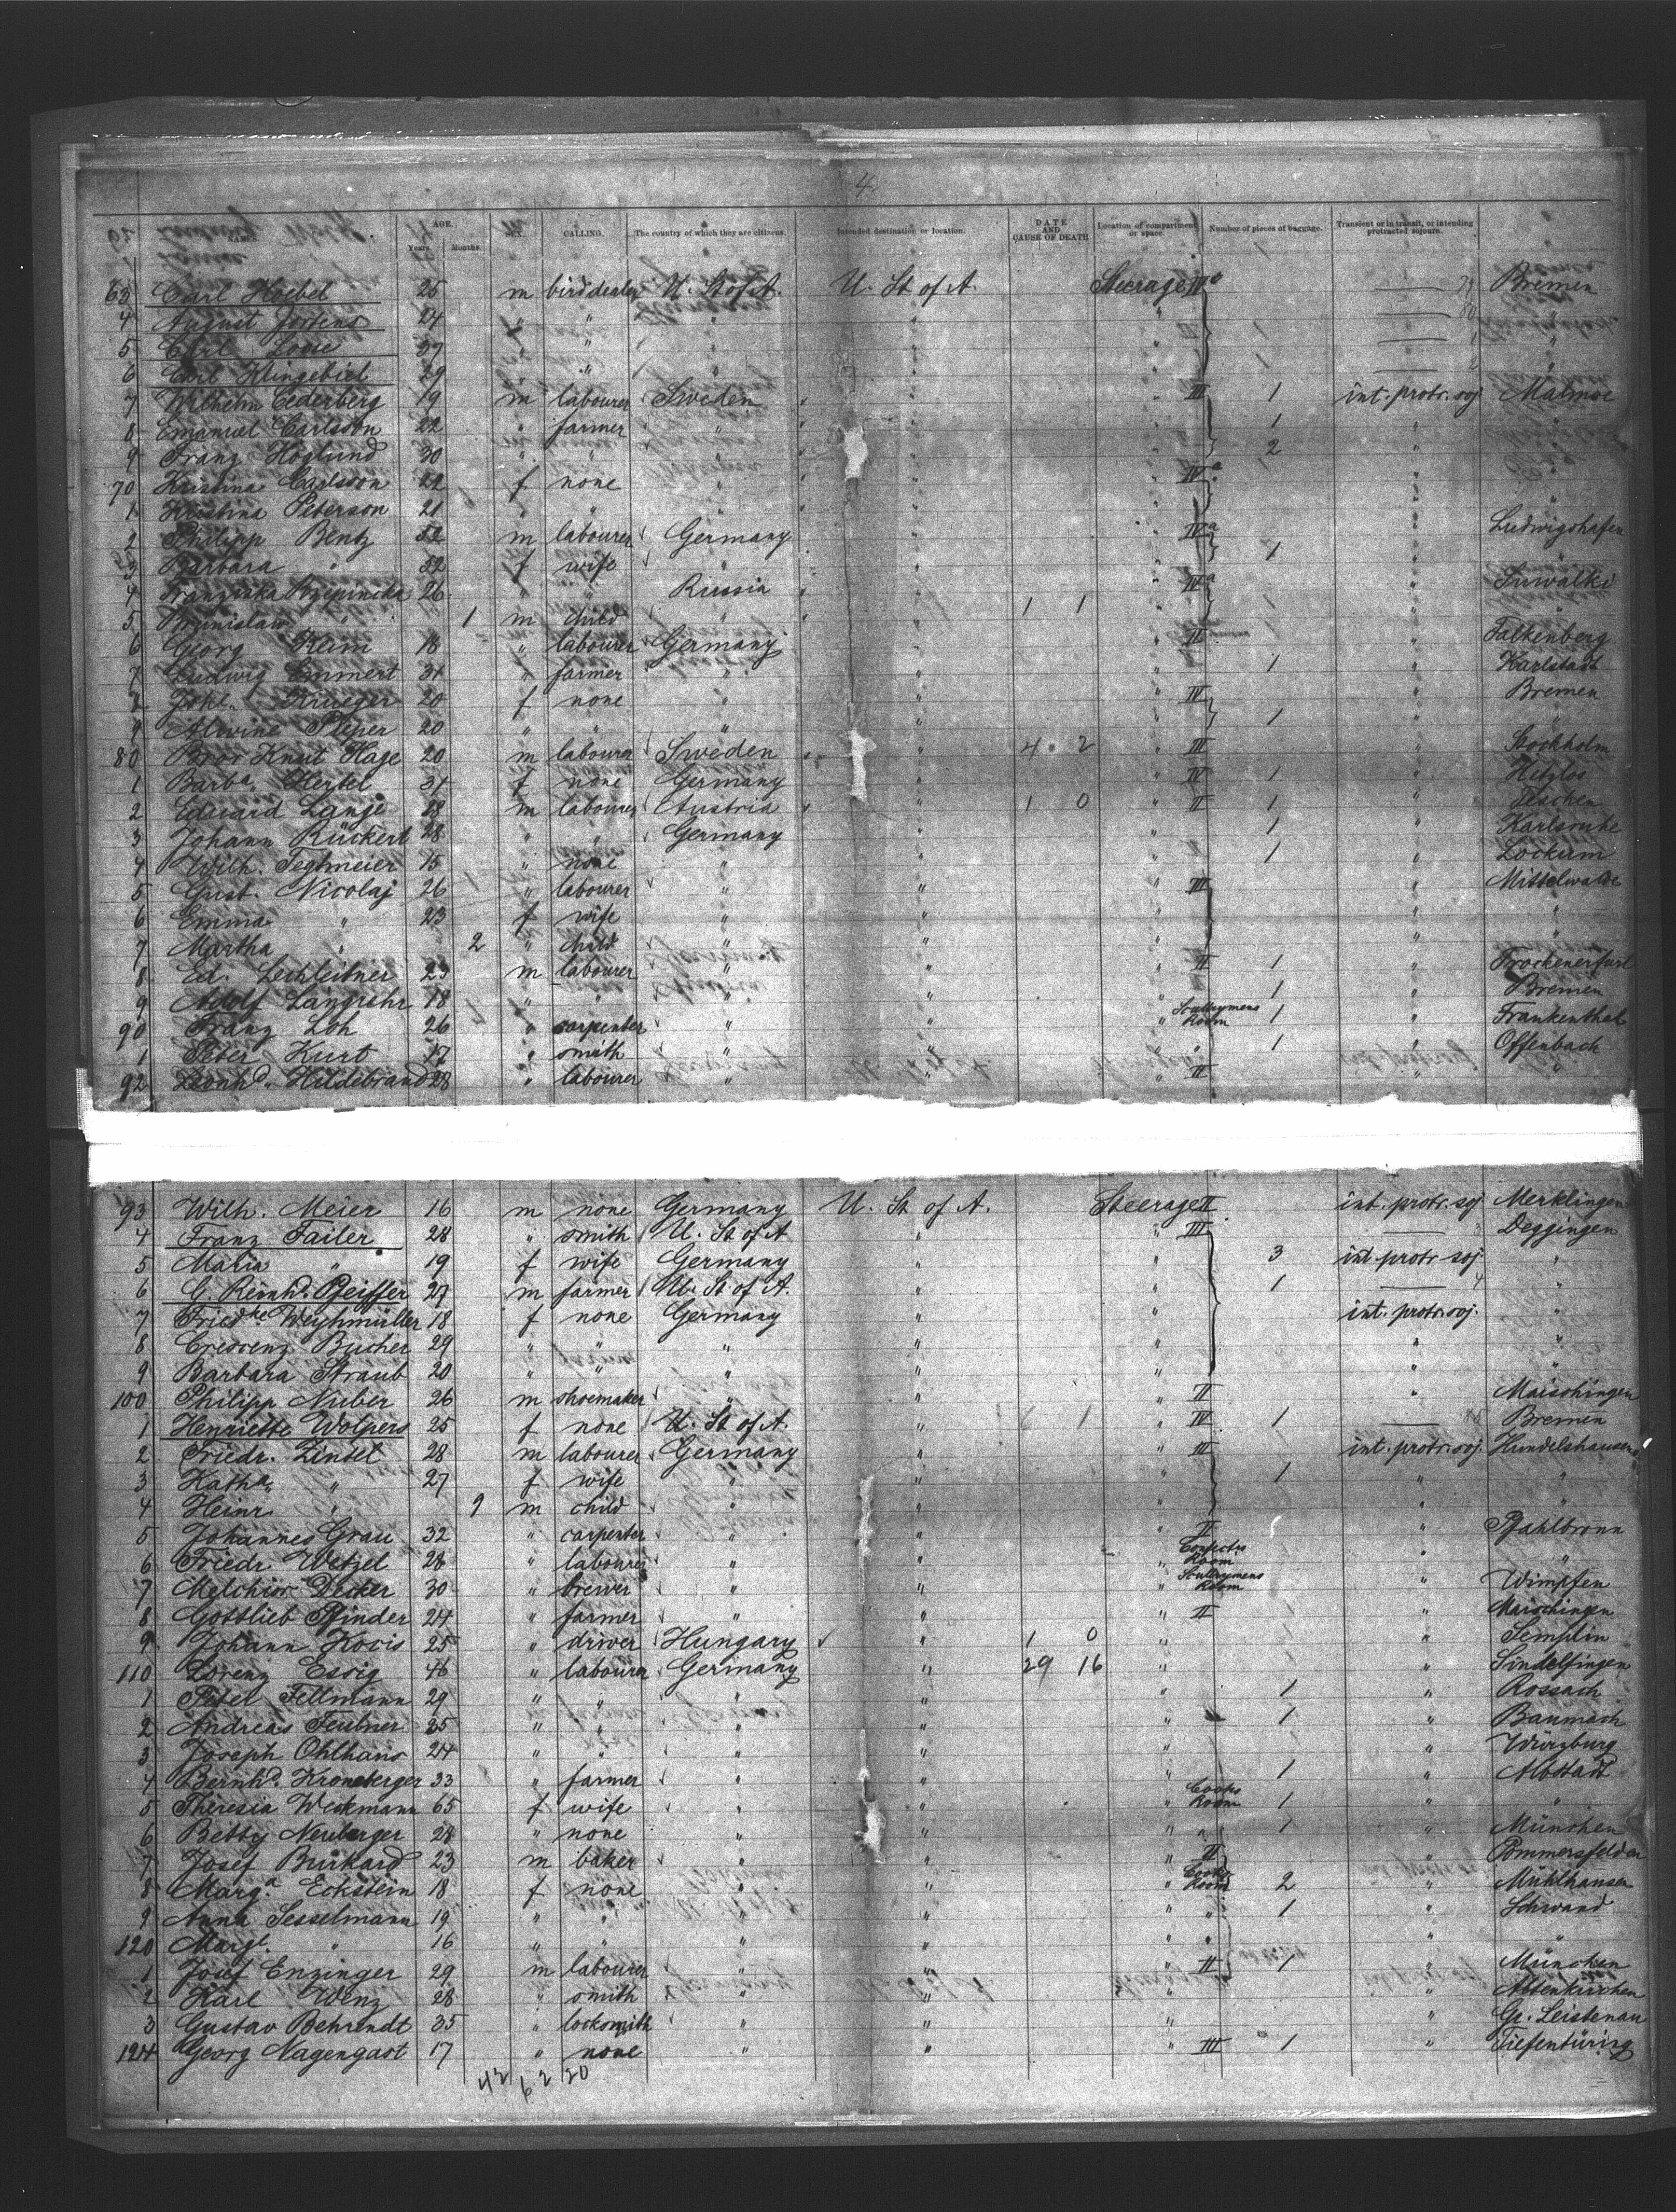 4
NAMES. AGE. Years. Months. SEX. CALLING. The country of which they are citizens. Intended destination or location. DATE AND CAUSE OF DEATH Location of compartment or space. Number of pieces of baggage. Transient or in transit, or intending protracted sojourn.
63 Carl Hoebel 25 m birddealer U. St of A. U. St of A. Steerage IV a — 79 Bremen
4 August Jortens 24 " " " " " — 80 "
5 Carl Loose 27 " " " " " — "
6 Carl Klingebiel 29 " " " " " — "
7 Wilhelm Cederberg 19 m labourer Sweden " " III 1 int. protr. soj Malmoe
8 Emanuel Carlsson 22 " farmer " " " 1 " "
9 Franz Höglund 30 " " " " " 2 " "
70 Kristina Carlsson 22 f none " " " IV a " "
1 Kristina Peterson 21 " " " " " " "
2 Philipp Bentz 52 m labourer Germany " " IV a " Ludwigshafen
3 Barbara " 52 f wife " " " 1 " "
4 Franziska Rzepincka 26 " " Russia " " IV a " Suwalki
5 Brunislaw " 1 m child " " 1 1 " " "
6 Georg Keim 18 " labourer Germany " " II " Falkenberg
7 Ludwig Emmert 31 " farmer " " " 1 " Karlstadt
8 Joh. Krueger 20 f none " " " IV " Bremen
9 Alwine Pleper 20 " " " " " 1 " "
80 Bror Knut Hage 20 m labourer Sweden " 4 2 " III " Stockholm
1 Barba. Hertel 31 f none Germany " " IV 1 " Hetzlos
2 Eduard Lange 28 m labourer Austria " 1 0 " II 1 " Teschen
3 Johann Rückert 28 " " Germany " " 1 " Karlsruhe
4 Wilh. Tegtmeier 15 " none " " " 1 " Lockum
5 Gust. Nicolaj 26 " labourer " " " III " Mittelwalde
6 Emma " 23 f wife " " " " "
7 Martha " 2 " child " " " " "
8 Ed. Lechleitner 23 m labourer " " " II 1 " Trockenerfurt
9 Adolf Langrehr 18 " " " " " 1 " Bremen
90 Franz Loh 26 " carpenter " " " Scullrymens Room 1 " Frankenthal
1 Peter Kurt 17 " smith " " " 1 " Offenbach
92 Leonhd. Hildebrand 28 " labourer " " " II " "
93 Wilh. Meier 16 m none Germany U. St of A. Steerage II int. protr. soj Merklingen
4 Franz Failer 28 " smith U. St of A " " III — 3 Deggingen
5 Maria " 19 f wife Germany " " 3 int. protr. soj. "
6 G. Reinhd. Pfeiffer 27 m farmer U. St of A. " " 1 — 4 "
7 Friedke Weyhmüller 18 f none Germany " " int. protr. soj. "
8 Crescenz Bucher 29 " " " " " " "
9 Barbara Straub 20 " " " " " " "
100 Philipp Nuber 26 m shoemaker " " " II " Maichingen
1 Henriette Wolpers 25 f none U. St of A. " 1 " IV 1 — 85 Bremen
2 Friedr. Zindel 28 m labourer Germany " " III int. protr. soj. Hundelshausen
3 Katha. " 27 f wife " " " 1 " "
4 Heinr. " 9 m child " " " " "
5 Johannes Grau 32 " carpenter " " " II " Pfahlbronn
6 Friedr. Wetzel 28 " labourer " " " Confects Room " "
7 Melchior Decker 30 " brewer " " " Scullrymens Room " Wimpfen
8 Gottlieb Pfinder 24 " farmer " " " II " Maichingen
9 Johann Kocis 25 " driver Hungary " 1 0 " " Semplin
110 Lorenz Essig 46 " labourer Germany " 29 16 " " Sindelfingen
1 Peter Fellmann 29 " " " " " 1 " Rossach
2 Andreas Teubner 35 " " " " " 1 " Baunach
3 Joseph Ohlhans 24 " " " " " " Würzburg
4 Bernhd. Kroneberger 33 " farmer " " " 1 " Albstadt
5 Theresia Weckmann 65 f wife " " " Cooks Room 1 " "
6 Betty Neuberger 28 " none " " " " 1 " München
7 Josef Burkard 23 m baker " " " II " Pommersfelden
8 Marga. Eckstein 18 f none " " " Cooks Room 2 " Mühlhausen
9 Anna Sesselmann 19 " " " " " " 1 " Schwand
120 Margt. " 16 " " " " " " " "
1 Josef Enzinger 29 m labourer " " " II 1 " München
2 Karl Wenz 28 " smith " " " " Abtenkirchen
3 Gustav Behrendt 35 " locksmith " " " " Gr. Leistenau
124 Georg Nagengast 17 " none " " " III 1 " Tiefentürisg
42 62 20